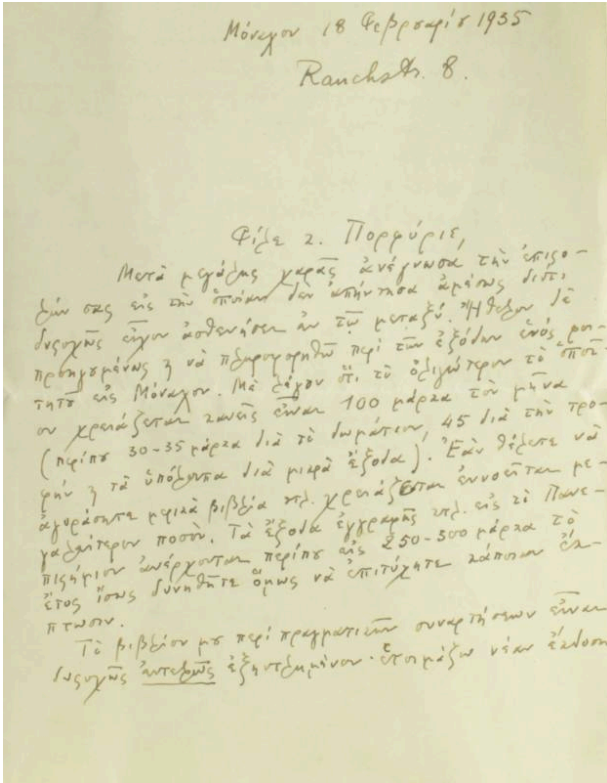 Μόναχον 18 Φεβρουαρίου 1935
Rauchstr. 8.
Φίλε κ. Πορφύριε,
Μετὰ μεγάλης χαρᾶς ἀνέγνωσα τὴν ἐπιστο-
λήν σας εἰς τὴν ὁποίαν δὲν ἀπήντησα ἀμέσως διότι
δυστυχῶς εἶχον ἀσθενήσει ἐν τῷ μεταξύ. Ἤθελον δὲ
προηγουμένως ν νὰ πληροφορηθῶ περὶ τῶν ἐξόδων ἑνός φοι-
τητοῦ εἰς Μόναχον. Μὲ λέγουν ὅτι τὸ ὀλιγώτερον τὸ ὁποῖ-
ον χρειάζεται κανεὶς εἶναι 100 μάρκα τὸν μῆνα
(περίπου 30-35 μάρκα διὰ τὸ δωμάτιον, 45 διὰ τὴν τρο-
φήν ν τὰ ὑπόλοιπα διὰ μικρὰ ἔξοδα). Ἐὰν θέλετε νὰ
ἀγοράσητε μερικὰ βιβλία κτλ. χρειάζεται ἐννοεῖται με-
γαλείτερον ποσόν. Τὰ ἔξοδα ἐγγραφῆς κτλ. εἰς τὸ Πανε-
πιστήμιον ἀνέρχονται περίπου εἰς 250-300 μάρκα τὸ
ἔτος ἴσως δυνηθῆτε ὅμως νὰ ἐπιτύχητε κάποιαν ἔκ-
πτωσιν.
Τὸ βιβλίον μου περὶ πραγματικῶν συναρτήσεων εἶναι
δυστυχῶς ἐντελῶς ἐξηντλημένον· ἑτοιμάζω νέαν ἔκδοσιν